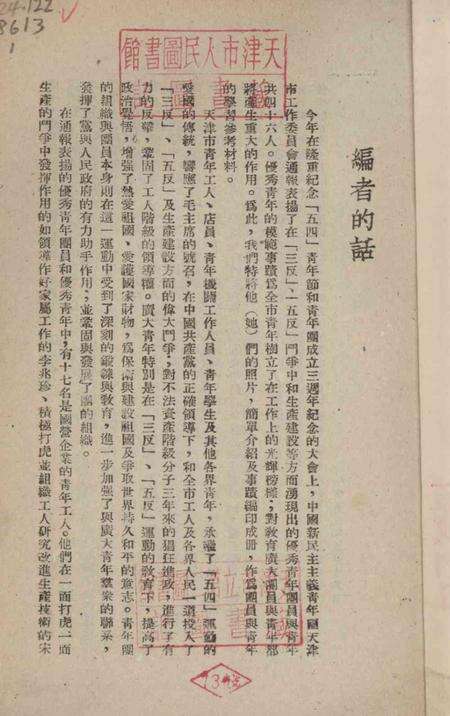 24.122
8613
1
天津市人民圖書館
編者的話
今年在隆重紀念「五四」青年節和青年團成立三週年紀念的大會上，中國新民主主義青年團天津
市工作委員會通報表揚了在「三反」、「五反」鬥爭中和生產建設等方面湧現出的優秀青年團員與青年
共四十六人。優秀青年的模範事蹟爲全市青年樹立了在工作上的光輝榜樣；對教育廣大團員與青年都
將產生重大的作用。爲此，我們特將他（她）們的照片，簡單介紹及事蹟編印成冊，作爲團員與青年
的學習參考材料。
天津市青年工人、店員、青年機關工作人員、青年學生及其他各界青年，承繼了「五四」運動的
愛國的傳統，響應了毛主席的號召，在中國共產黨的正確領導下，和全市工人及各界人民一道投入了
「三反」、「五反」及生產建設方面的偉大鬥爭；對不法資產階級分子三年來的猖狂進攻，進行了有
力的反擊，鞏固了工人階級的領導權。廣大青年特別是在「三反」、「五反」運動的教育下，提高了
政治覺悟，增强了熱愛祖國、愛護國家財物，爲保衛與建設祖國及爭取世界持久和平的意志。青年團
的組織與團員本身則在這一運動中受到了深刻的鍛鍊與教育，進一步加强了與廣大青年羣衆的聯系，
發揮了黨與人民政府的有力助手作用；並鞏固與發展了團的組織。
在通報表揚的優秀青年團員和優秀青年中，有十七名是國營企業的青年工人。他們在一面打虎一面
生產的鬥爭中發揮作用的如領導作好家屬工作的李兆珍、積極打虎並組織工人研究改進生產技術的宋